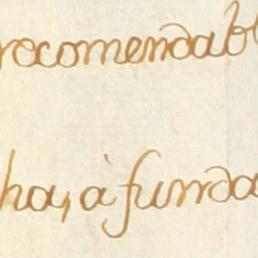 recomendabl
hay à funda